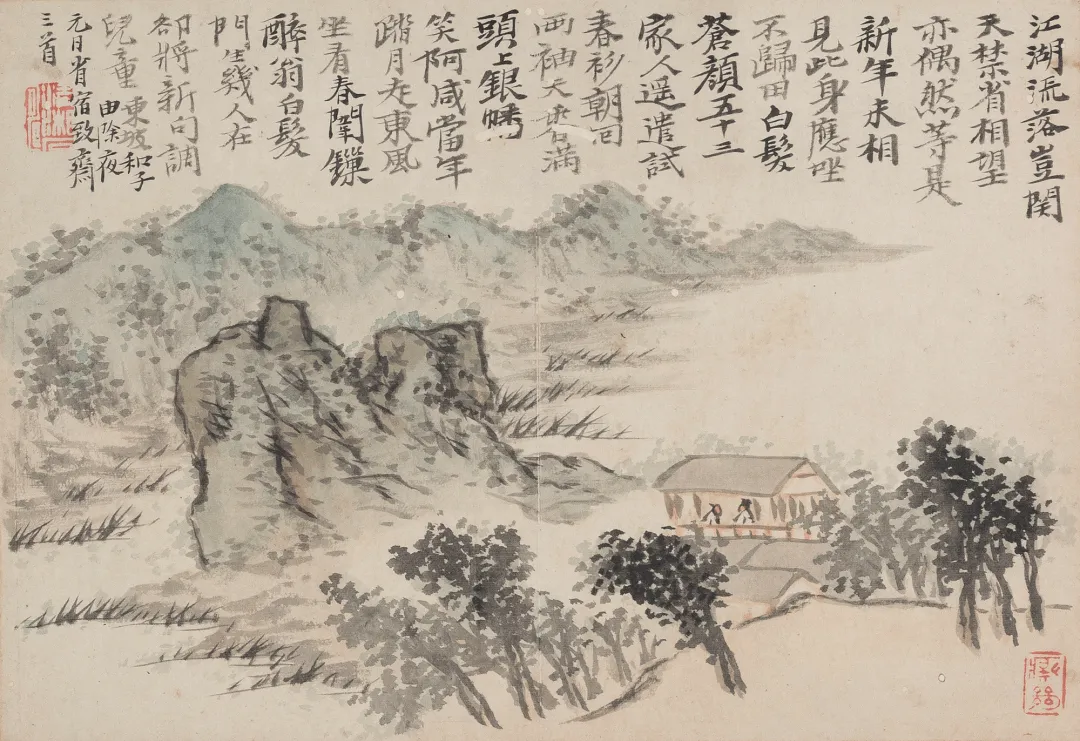 江湖流落豈関
天禁省相望
亦偶然等是
新年未相
見此身應坐
不歸田白髮
蒼顔五十三
家人遥遣試
春衫朝回
両袖天香滿
頭上銀幡
笑阿咸當年
踏月走東風
坐看春闈鏁
醉翁白髮
門生幾人在
卻將新句調
兒童 東坡和子
由除夜
元日省宿致齋
三首